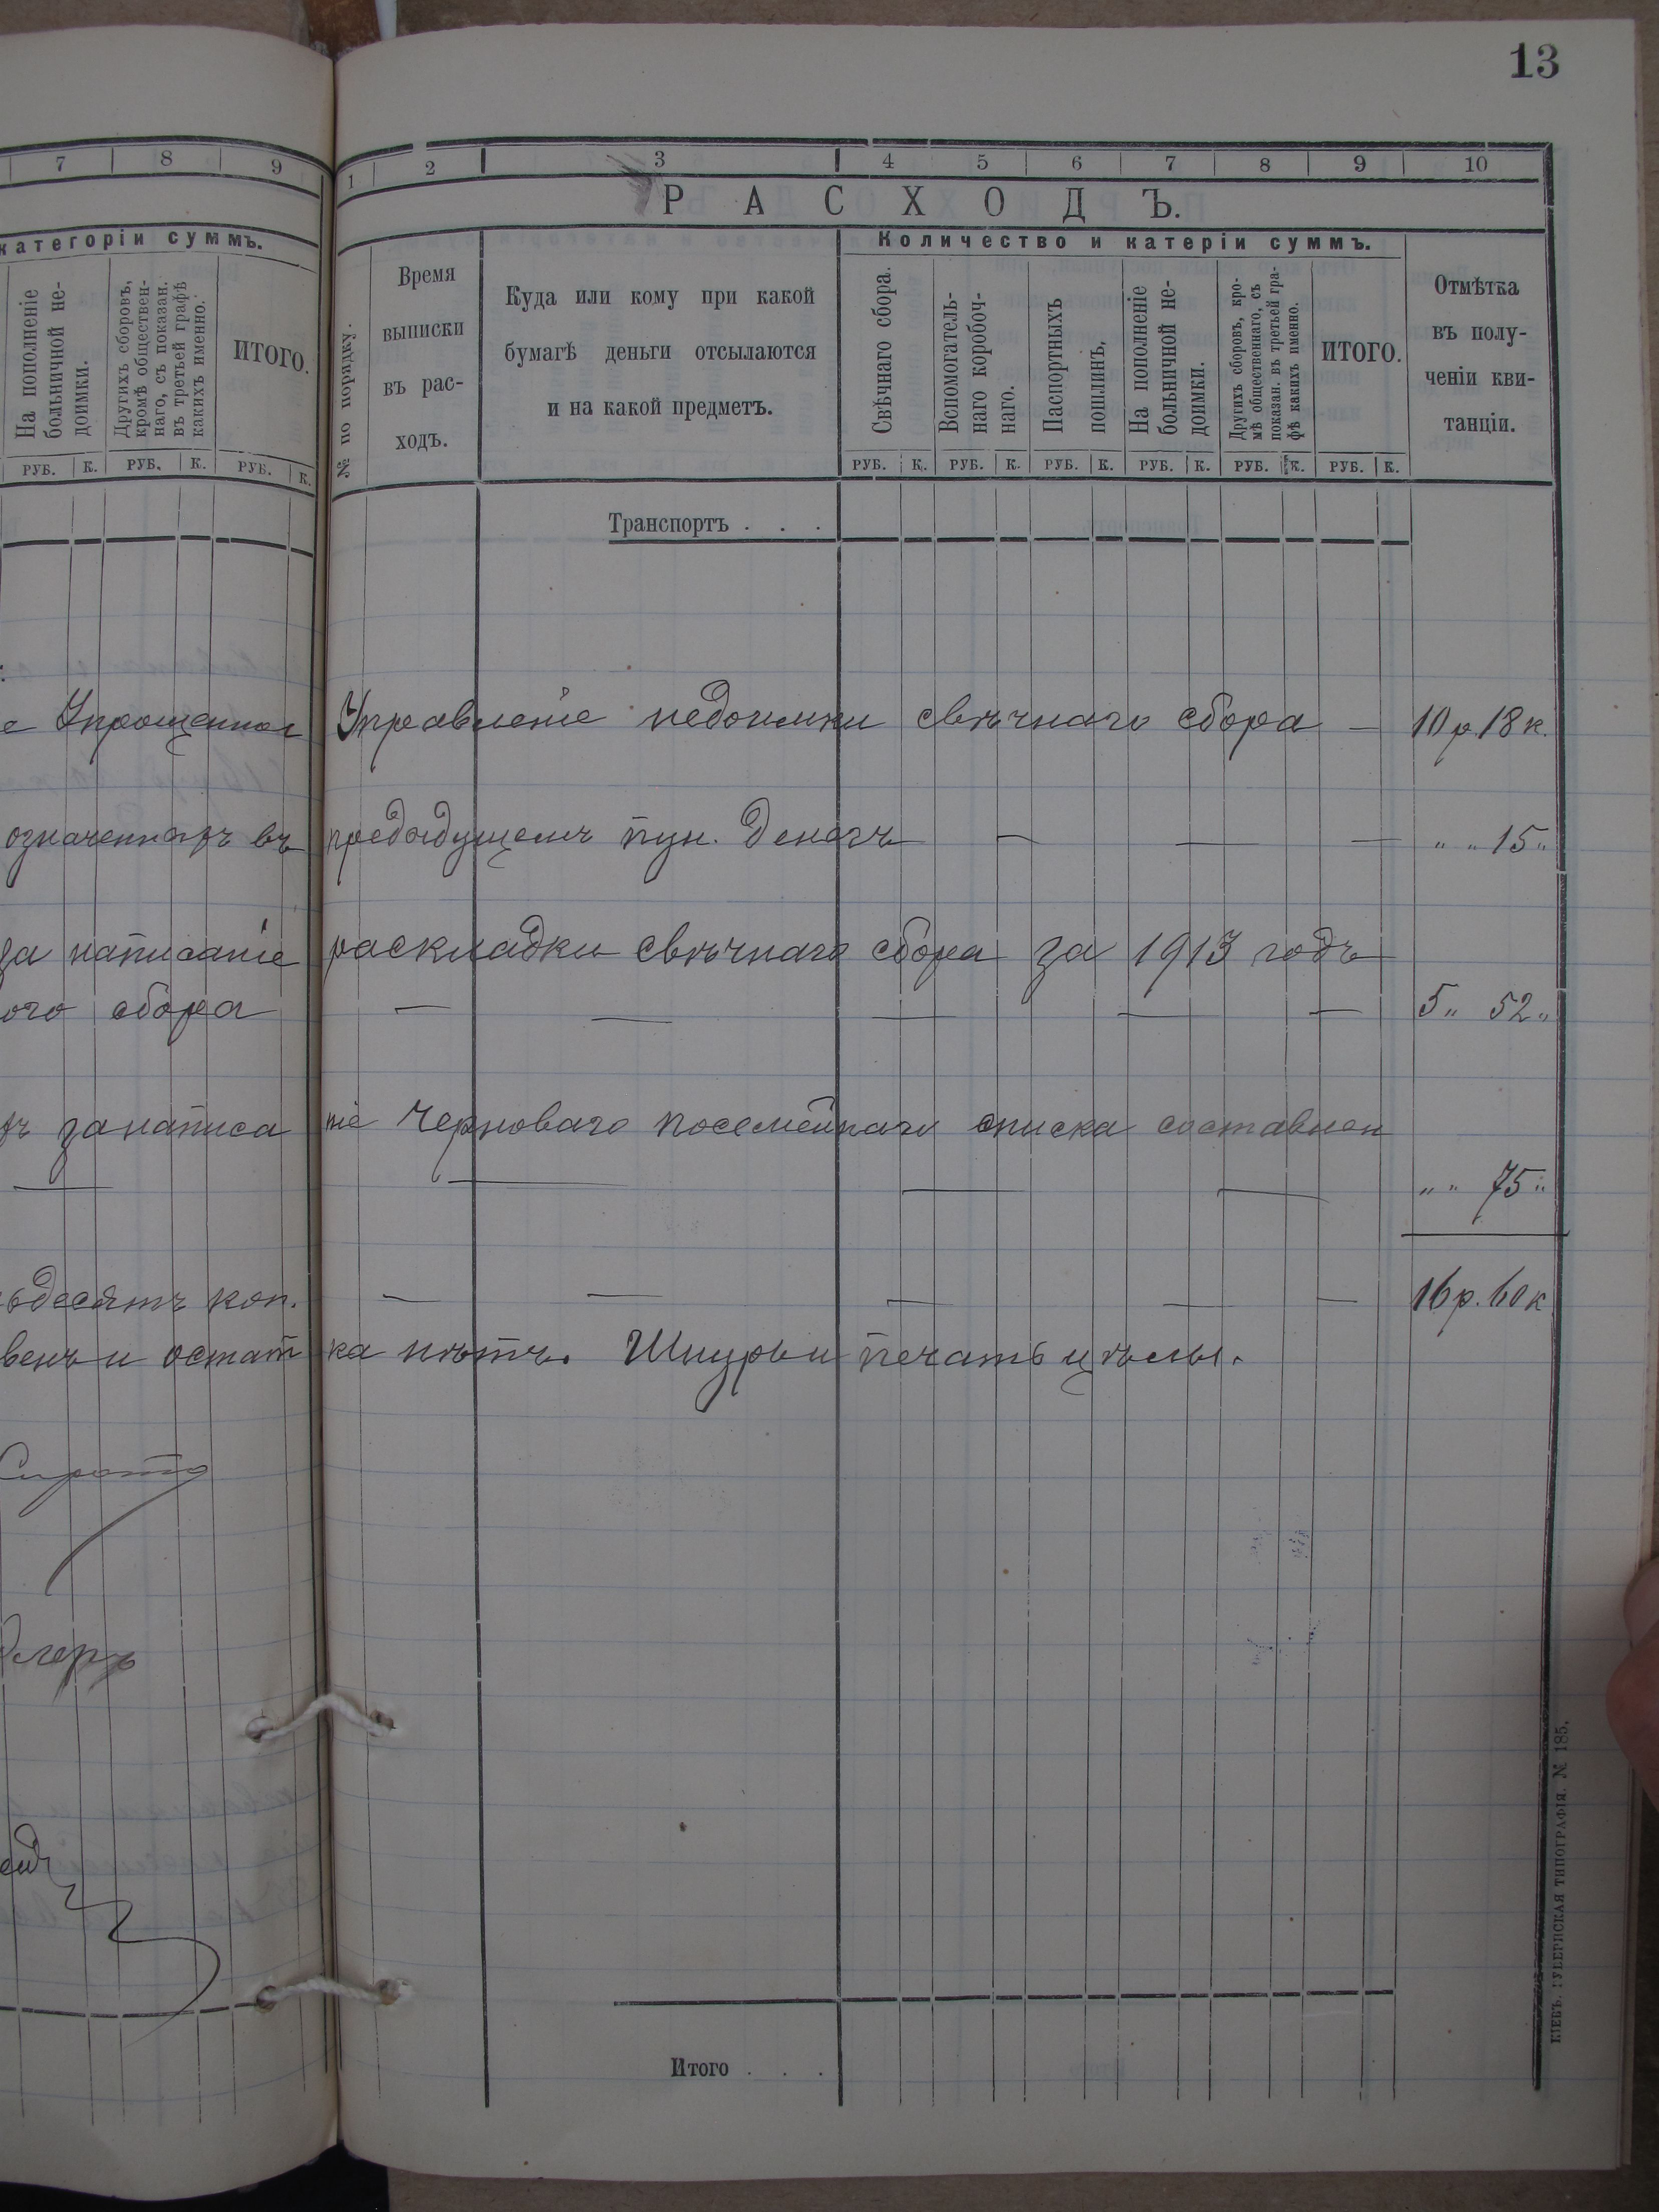 13
7 8 9
категоріи суммъ.
На пополненіе больничной недоимки.
Другихъ сборовъ, кромѣ общественнаго, съ показан. въ третьей графѣ какихъ именно.
ИТОГО.
РУБ. К. РУБ. К. РУБ. К.
1 2 3 4 5 6 7 8 9 10
РАСХОДЪ.
№ по порядку.
Время
выписки
въ рас-
ходъ.
Куда или кому при какой
бумагѣ деньги отсылаются
и на какой предметъ.
Количество и катеріи суммъ.
Свѣчнаго сбора.
Вспомогатель-
наго коробоч-
наго.
Паспортныхъ
пошлинъ,
На пополненіе
больничной не-
доимки.
Другихъ сборовъ, кро-
мѣ общественнаго, съ
показан. въ третьей гра-
фѣ какихъ именно.
ИТОГО.
Отмѣтка
въ полу-
ченіи кви-
танціи.
РУБ. К. РУБ. К. РУБ. К. РУБ. К. РУБ. К. РУБ. К.
Транспортъ . . .
Управленіе недоимки свѣчнаго сбора — 10 р. 18 к.
означенныхъ въ предыдущемъ пун. денегъ — — — " " 15 "
за написаніе раскладки свѣчнаго сбора за 1913 годъ
ого сбора — — — — — 5 " 52 "
ъ за написа ніе черноваго посемейнаго списка составлен
— — — — " " 75 "
ьдесятъ коп. — — — — — 16 р. 60 к
венъ и остат ка нѣтъ. Шнуръ и печать цѣлы.
Сирота
Итого . . .
КІЕВЪ. ГУБЕРНСКАЯ ТИПОГРАФІЯ. № 185.